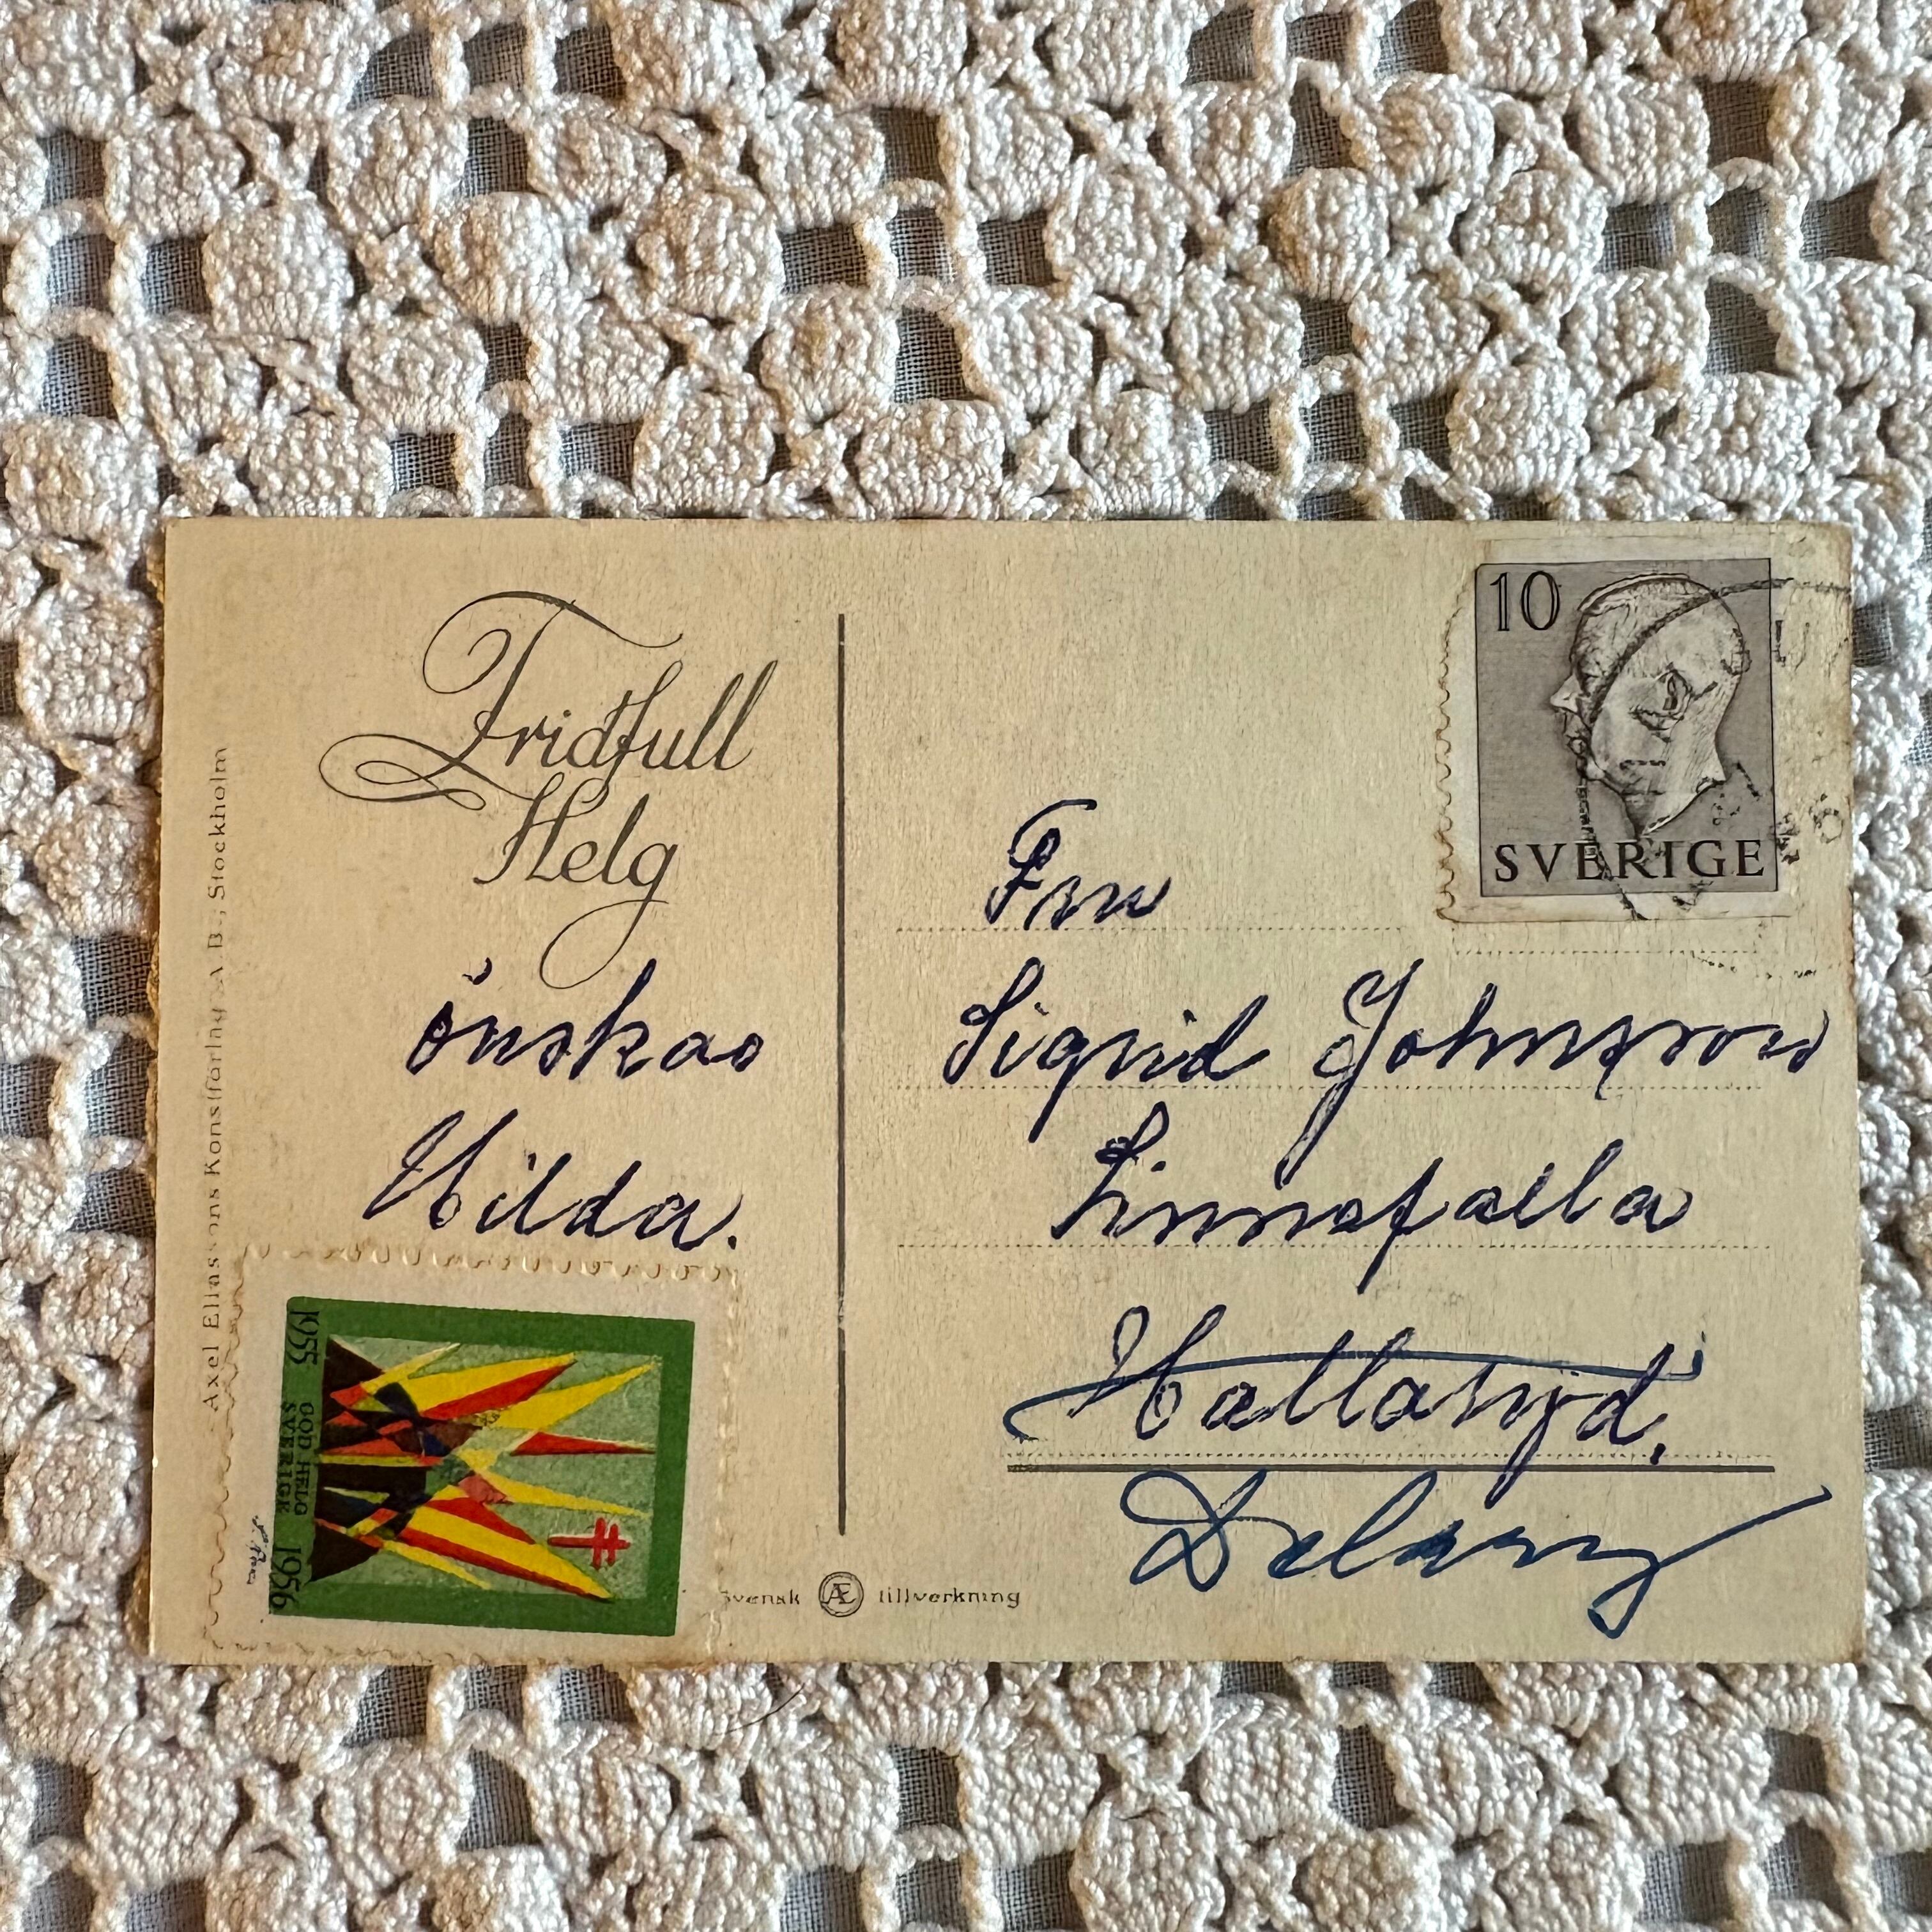 Fridfull
Helg
önskas
Hilda.
Axel Eliassons Konstförlag A.B., Stockholm
1955
GOD HELG
SVERIGE
1956
Svensk Æ tillverkning
10
SVERIGE
Fru
Sigrid Johnsson
Linnefälla
Delary